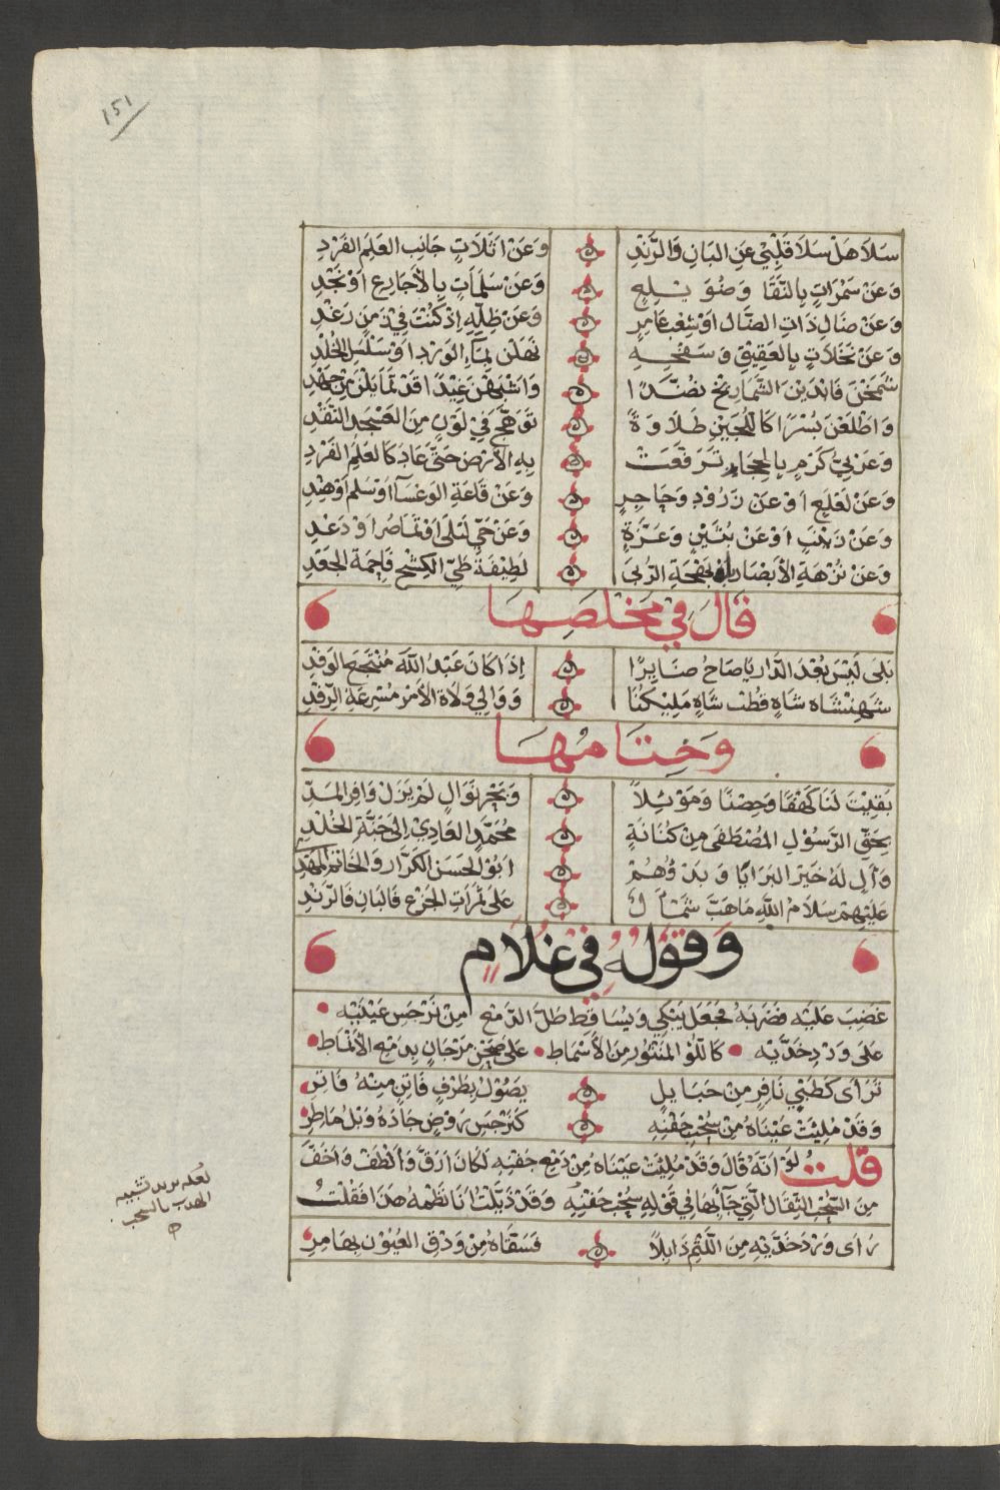 ١٥١
سَلَا هَلْ سَلَا قَلْبِيْ عَنِ البَانِ وَالرَّنْدِ وَعَنْ اَثَلَاتٍ جَانِبَ العَلَمِ الفَرْدِ
وَعَنْ سَمُرَاتٍ بِالنَّقَا وَضُوَيْلِعٍ وَعَنْ سَلَمَاتٍ بِالأَجَارِعِ اَوْ نَجْدِ
وَعَنْ ضَالِ ذَاتِ الضَّالِ اَوْ شِعْبِ عَامِرٍ وَعَنْ ظِلِّهِ اِذْ كُنْتُ فِيْ زَمَنٍ رَغْدِ
وَعَنْ نَخَلَاتٍ بِالعَقِيْقِ وَسَفْحِهِ نَهَلْنَ بِمَآءِ الوَرْدِ اَوْ سَلْسَلِ الخُلْدِ
شَمَخْنَ فَابْدَيْنَ الشَّمَارِيْخَ نُضَّدًا وَاَشْبَهْنَ غِيْدًا قَدْ تَمَايَلْنَ مِنْ جَهْدِ
وَاَطْلَعْنَ بُسْرًا كَاللُّجَيْنِ طَلَاوَةً تَوَهَّجَ فِيْ لَوْنٍ مِنَ العَسْجَدِ النَّقْدِ
وَعَنْ بِيْ كَرَمٍ بِالحِجَازِ تَرَفَّعَتْ بِهِ الأَرْضُ حَتَّى عَادَ كَالعَلَمِ الفَرْدِ
وَعَنْ لَعْلَعٍ اَوْ عَنْ زَرُوْدٍ وَحَاجِرٍ وَعَنْ قَاعَةِ الوَعْسَآءِ اَوْ سَلْمٍ اَوْ هِنْدِ
وَعَنْ زَيْنَبٍ اَوْ عَنْ بُثَيْنٍ وَعَزَّةٍ وَعَنْ حَيِّ لَيْلَى اَوْ تَمَاضُرَ اَوْ دَعْدِ
وَعَنْ نُزْهَةِ الأَبْصَارِ بَلْ بَهْجَةِ الرُّبَى لَطِيْفَةُ طَيِّ الكَشْحِ فَاحِمَةُ الجَعْدِ
قَالَ فِيْ مَخْلَصِهَا
بَلَى لَيْسَ بُعْدَ الدَّارِ يَا صَاحُ ضَايِرًا اِذَا كَانَ عَبْدُ اللَّهِ مُنْتَجَعَ الوَفْدِ
شَهِنْشَاه شَاهٍ قُطْب شَاهٍ مَلِيْكُنَا وَوَالِي وُلَاةِ الأَمْرِ مُشْرِعَةِ الرِّفْدِ
وَخِتَامُهَا
بَقِيْتَ لَنَا كَهْفًا وَحِصْنًا وَمَوْئِلًا وَبَحْرَ نَوَالٍ لَمْ يَزَلْ وَافِرَ المَدِّ
بِحَقِّ الرَّسُوْلِ المُصْطَفَى مِنْ كِنَانَةٍ مُحَمَّدٍ الهَادِيْ اِلَى جَنَّةِ الخُلْدِ
وَآلٍ لَهُ خَيْرَ البَرَايَا وَبَدْؤُهُمْ اَبُوْ الحَسَنِ الكَرَّارِ وَالخَاتَمُ المَهْدِيْ
عَلَيْهِمْ سَلَامُ اللَّهِ مَا هَبَّ شَمْأَلٌ عَلَى ثَمَرَاتِ الجِزْعِ فَالبَانِ فَالرَّنْدِ
وَقَوْلُهُ فِيْ غُلَامٍ
غَضِبَ عَلَيْهِ فَضَرَبَهُ فَجَعَلَ يَبْكِي وَيُسَاقِطُ طَلَّ الدَّمْعِ مِنْ نَرْجَسِ عَيْنَيْهِ
عَلَى وَرْدِ خَدَّيْهِ كَاللُّؤْلُؤِ المَنْثُوْرِ مِنَ الأَسْمَاطِ عَلَى صَحْنِ مَرْجَانٍ بِدَمْعِ الأَنْمَاطِ
تَرَاَى كَظَبْيٍ نَافِرٍ مِنْ حَبَايِلٍ يَصُوْلُ بِطَرْفٍ فَاتِنٍ مِنْهُ فَاتِرِ
وَقَدْ مُلِئَتْ عَيْنَاهُ مِنْ سُحْبِ جَفْنِهِ كَنَرْجَسِ رَوْضٍ جَادَهُ وَبْلُ مَاطِرِ
قُلْتُ لَوْ اَنَّهُ قَالَ وَقَدْ مُلِئَتْ عَيْنَاهُ مِنْ دَمْعِ جَفْنِهِ لَكَانَ اَرَقَّ وَاَلْطَفَ وَاَخَفَّ
مِنَ السُّحْبِ الثِّقَالِ الَّتِيْ جَآءَ بِهَا فِيْ قَوْلِهِ سُحْبِ جَفْنِهِ وَقَدْ ذَيَّلْتُ اَنَا نَظْمَهُ هَذَا فَقُلْتُ
رَاَى وَرْدَ خَدَّيْهِ مِنَ اللَّثْمِ ذَابِلًا فَسَقَاهُ مِنْ وَدْقِ العُيُوْنِ بِهَامِرِ
لعله يريد تشبيه
الهدب بالسحب